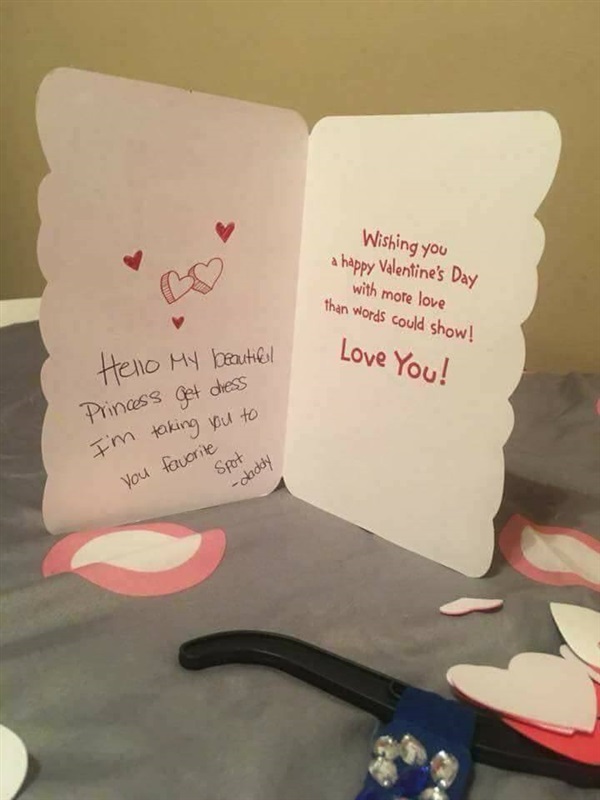 Hello My beautiful
Princess get dress
I'm taking you to
you favorite
Spot
-daddy
Wishing you
a happy Valentine's Day
with more love
than words could show!
Love You!